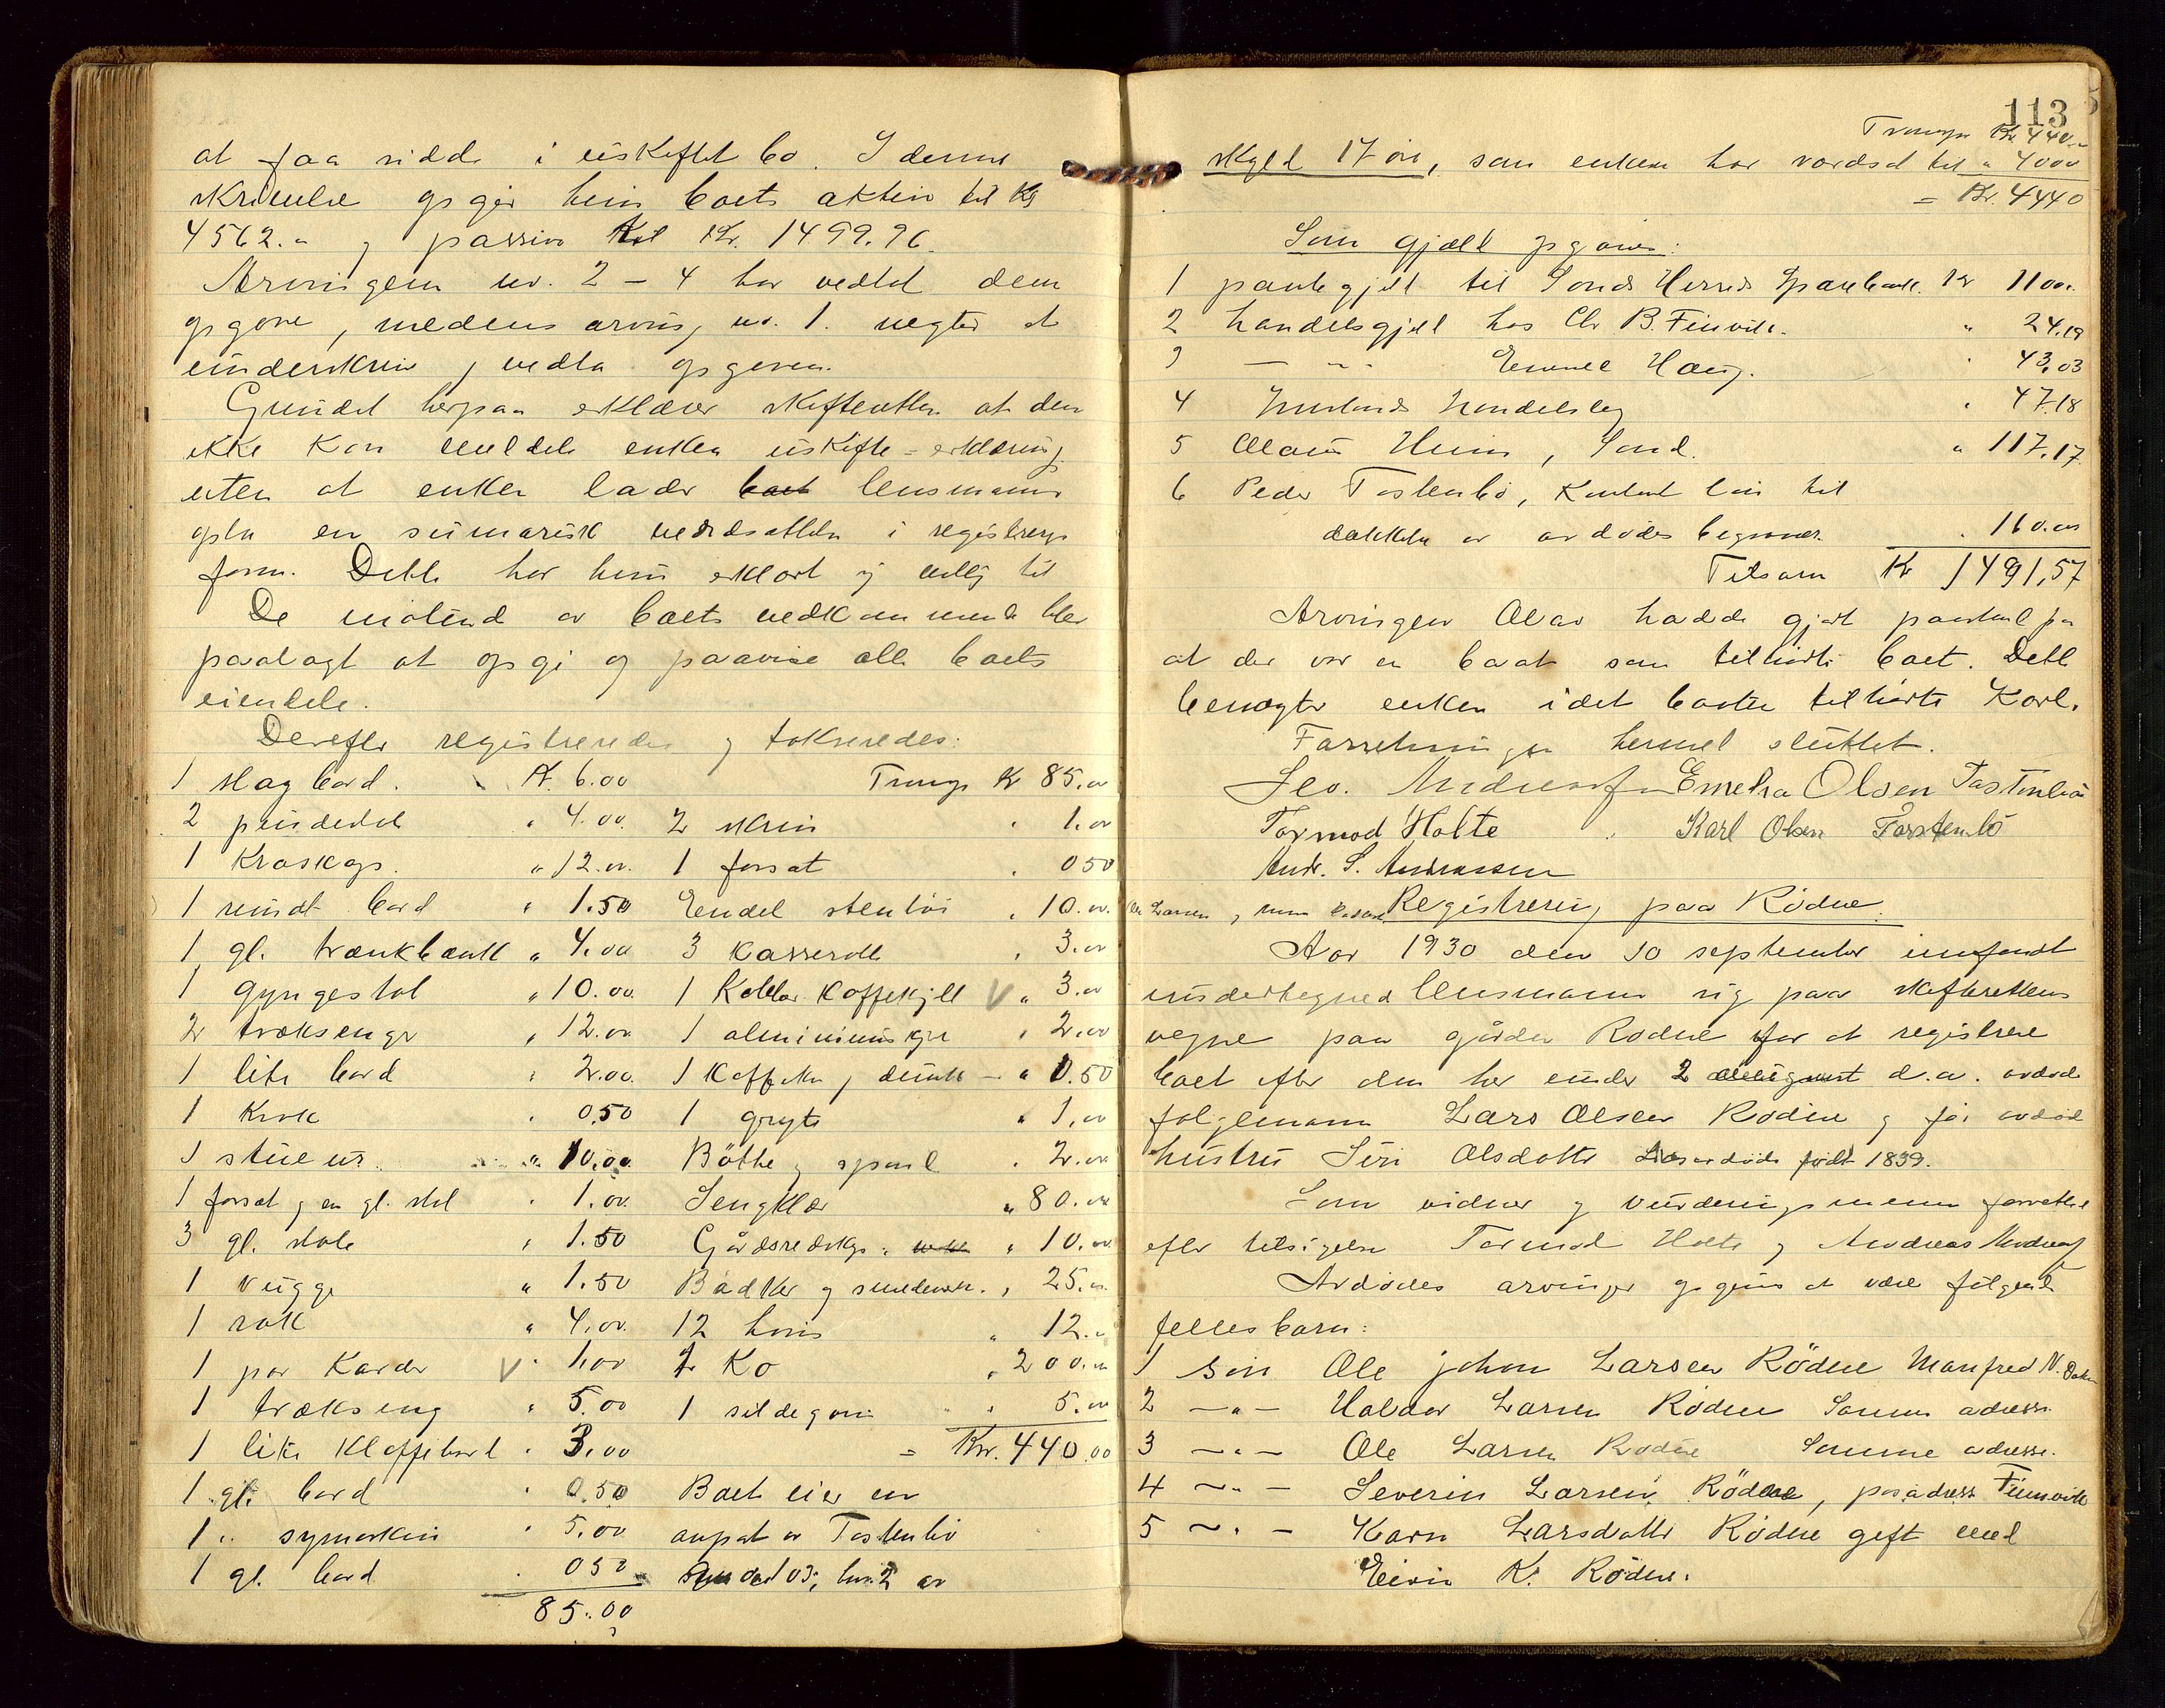 at faa sidde i uskiftet bo. I denne
skrivelse opgir hun boets aktiva til Kr
4562.- og passiva til Kr. 1499.96.
Arvingen nr. 2 - 4 har vedtat denne
opgave, medens arving nr. 1. negter at
underskrive og vedta opgaven.
Grundet herpaa erklærer skifteretten at den
ikke kan meddele enken uskifte-erklæring
uten at enken lader boet lensmannen
opta en sumarisk verdsettelse i registrerings
form. Dette har hun erklært sig villig til
De møtende av boets vedkommende blev
paalagt at opgi og paavise alle boets
eiendele.
Derefter registreredes og takseredes:
1 slagbord. Kr. 6.00 Transp. Kr 85.00
2 pindestole " 4.00. 2 skrin " 1.00
1 Kråskap. " 12.00. 1 forsat " 050
1 rundt bord " 1.50 Endel stentøi " 10.00.
1 gl. trænkbænk " 4.00 3 Kasserolle " 3.00
1 gyngestol " 10.00. 1 Kobber Kaffekjell V " 3.00
2 træksenge " 12.00 1 aluminiumskjel " 2.00
1 lite bord " 2.00. 1 Kaffekv. og dunk — " 0.50
1 Krak " 0.50 1 gryte " 1.00
1 stueur. " 10.00. Bøtte og spand " 2.00
1 forsat og en gl. stol " 1.00. Sengklær " 80.00
3 gl. stole " 1.50 Gårdsredskap " 10.00
1 vugge " " 1.50 Bødker og smedverk. " 25.00
1 rok " 4.00. 12 høns " 12.-
1 par Karder V " 1.00 2 Ko " 200.00
1 trækseng " 5.00 1 sildegarn " 5.00
1 lite Klaffebord " 3.00 = Kr. 440.00
1 gl. bord " 0.50 Boet eier en
1 " symaskin " 5.00 anpart av Tastenbø
1 gl. bord " 050 03, br. 2 av
85.00
113
Transp Kr 440.-
skyld 17 øre, som enken har værdsat til " 4000
= Kr. 4440
Som gjæld opgaves:
1 pantegjeld til Sands Herreds Sparebank. Kr 1100.
2 handelsgjeld hos Chr B. Finvik. " 24.19
3 — " - Emmel Haug. " 43.03
4 Imslands handelslag " 47.18
5 Olaus Heim, Sand. " 117.17
6 Peder Tastenbø, Kontant lån til
dækkelse av avdødes begravelse. " 160.00
Tilsam Kr 1491,57
Arvingen Olav hadde gjort paastand paa
at der var en baat som tilhørte boet. Dette
benegter enken idet baaten tilhørte Karl.
Forretningen hermed sluttet.
Severin Andreassen Emelia Olsen Tastenbø
Tormod Holte Karl Olsen Tastenbø
Andr. S. Andreassen
Registrering paa Rødne.
Aar 1930 den 10 september innfandt
undertegned lensmann sig paa skifterettens
vegne paa gården Rødne for at registrere
boet efter den her under 2 august d.a. avdøde
følgemann Lars Olsen Rødne og før avdøde
hustru Siri Olsdotter Lars avdøde født 1839.
Som vidner og vurderingsmenn forrettet
efter tilsigelse Tormod Holte og Andreas Andreassen
Avdødes arvinger opgives at være følgende
fellesbarn:
1 søn Ole Johan Larsen Rødne Manfred N. Dakota
2 — " — Haldor Larsen Rødne Samme adresse.
3 — " — Ole Larsen Rødne Samme adresse.
4 — " — Severin Larsen Rødne, pr. adress Finnvik
5 — " — Karn Larsdotter Rødne gift med
Eivin K. Rødne.